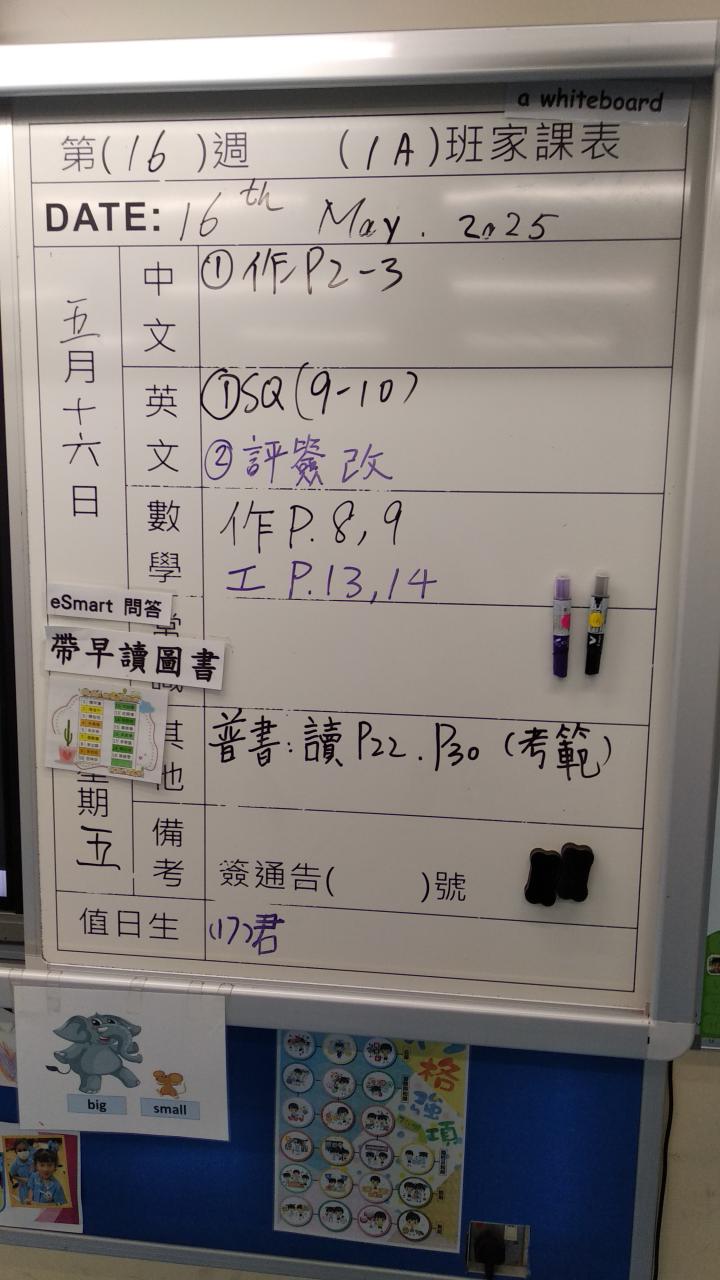 a whiteboard
第(16)週 (1A)班家課表
DATE: 16th May. 2025
五月十六日
中文
①作P2-3
英文
①SQ(9-10)
②評簽改
數學
作P.8,9
工P.13,14
eSmart 問答
常識
帶早讀圖書
其他
普書:讀P22.P30(考範)
星期五
備考
簽通告( )號
值日生
(17)君
big
small
格
強
項